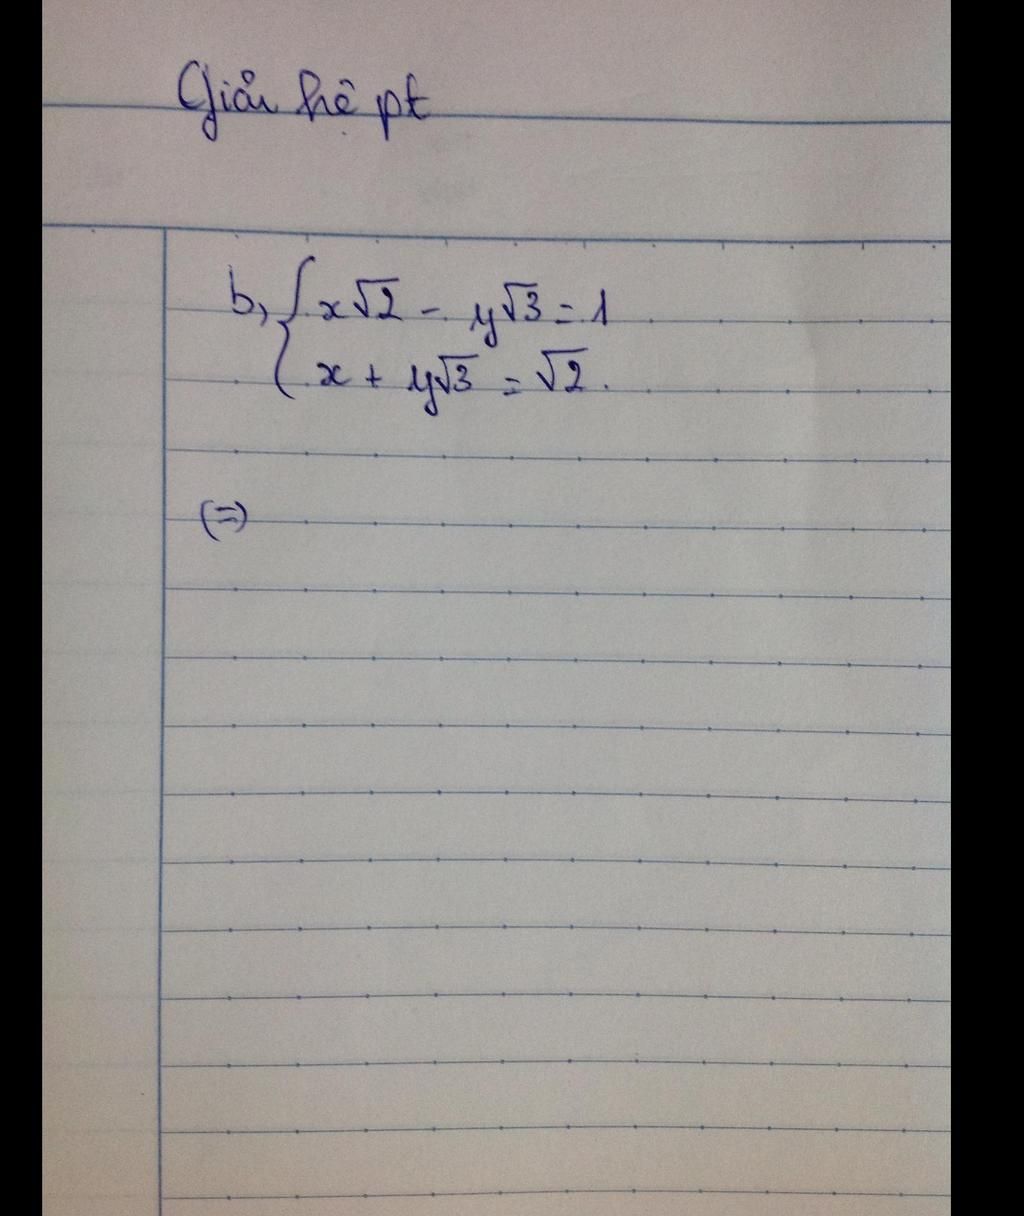 Giải hệ pt
b, { x√2 - y√3 = 1
x + y√3 = √2.
(=)